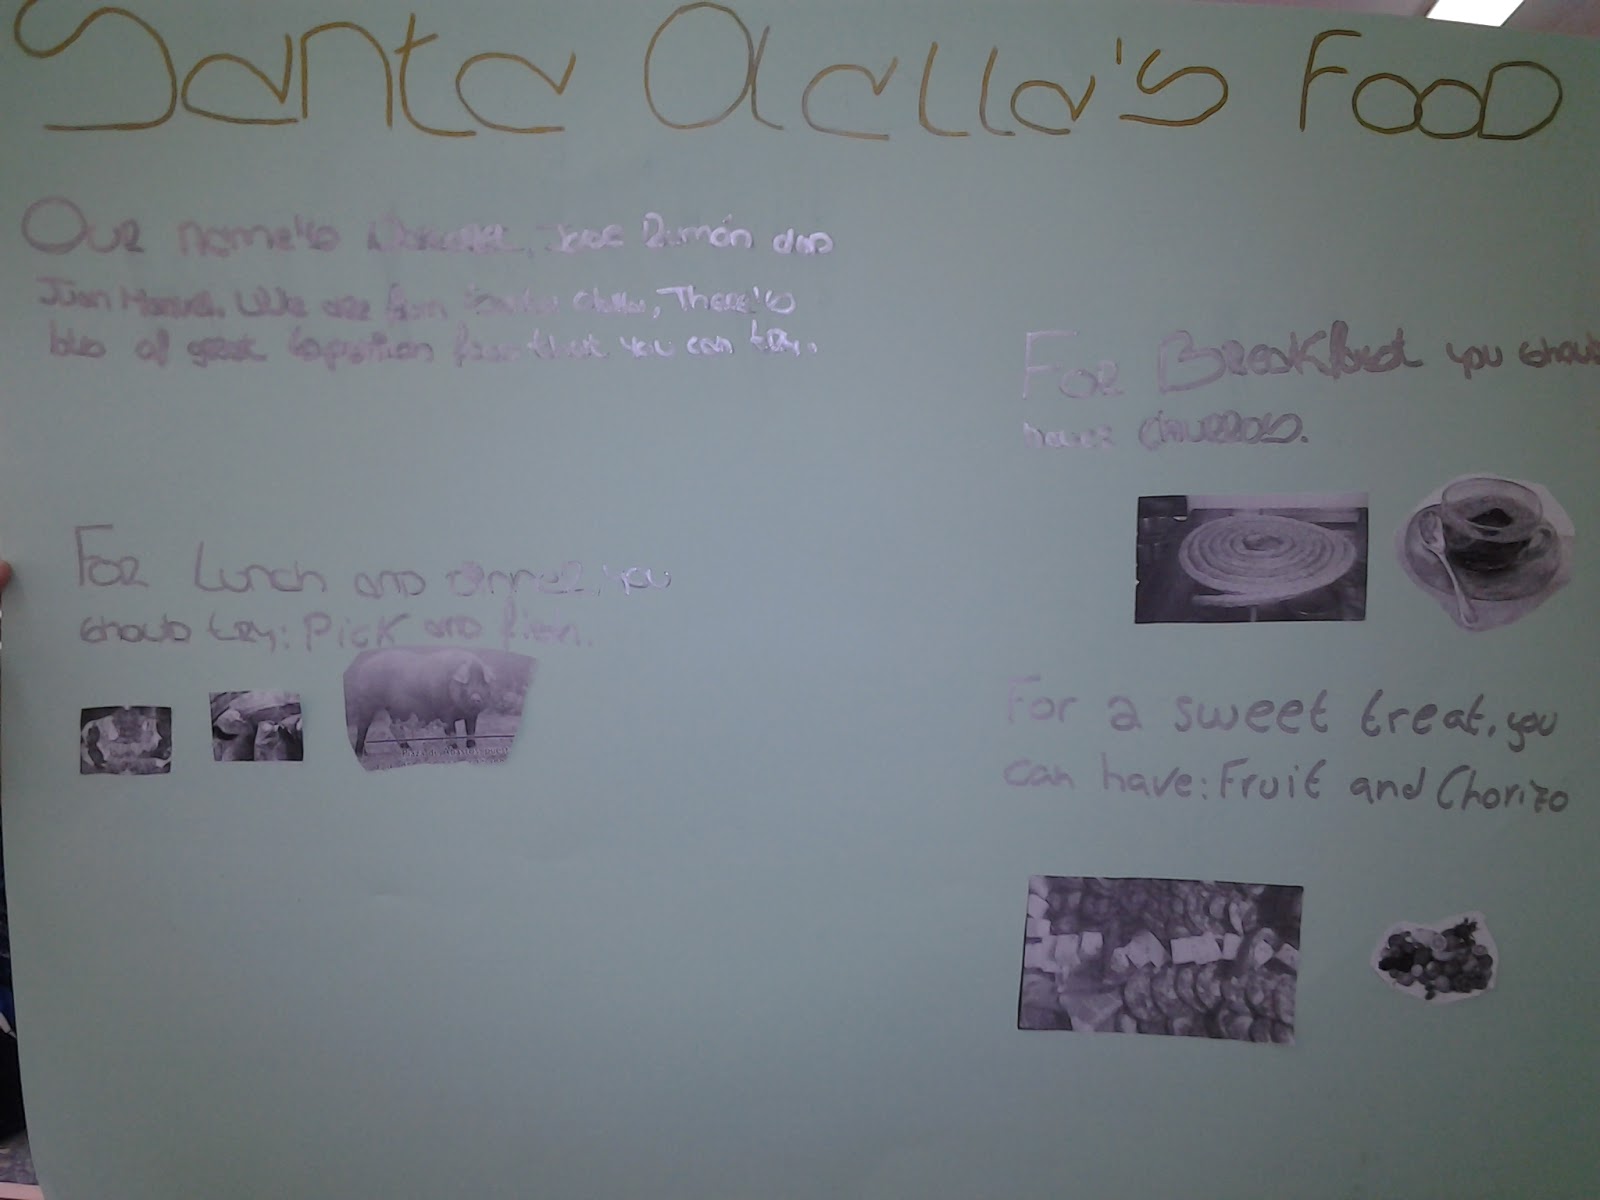 Santa Olalla's Food
Our name's Jose Ramón and
Juan Manuel. We are from Santa Olalla, There's
of great that you can try.
For Lunch and dinner, you
should try: Pick and
For Breakfast you should
have churros.
For a sweet treat, you
can have: Fruit and Chorizo